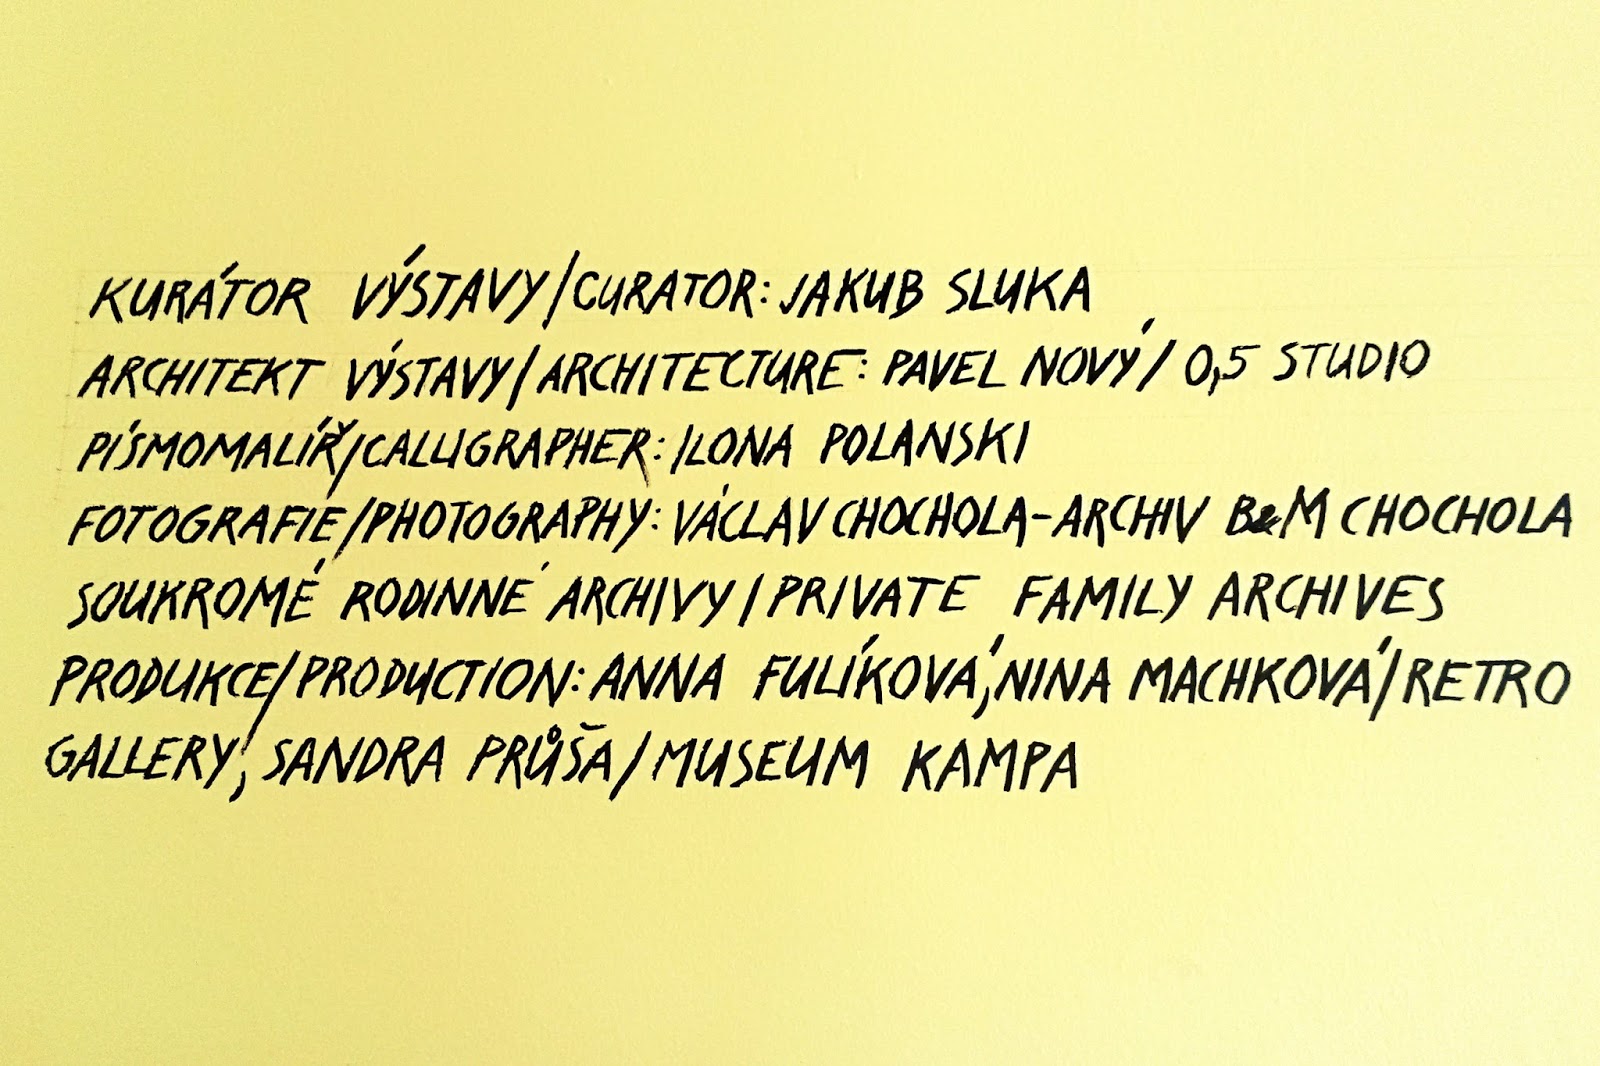 KURÁTOR VÝSTAVY/CURATOR: JAKUB SLUKA
ARCHITEKT VÝSTAVY/ARCHITECTURE: PAVEL NOVÝ/ 0,5 STUDIO
PÍSMOMALÍŘ/CALLIGRAPHER: ILONA POLANSKI
FOTOGRAFIE/PHOTOGRAPHY: VÁCLAV CHOCHOLA-ARCHIV B&M CHOCHOLA
SOUKROMÉ RODINNÉ ARCHIVY/PRIVATE FAMILY ARCHIVES
PRODUKCE/PRODUCTION: ANNA FULÍKOVÁ, NINA MACHKOVÁ/RETRO
GALLERY, SANDRA PRŮŠA/MUSEUM KAMPA